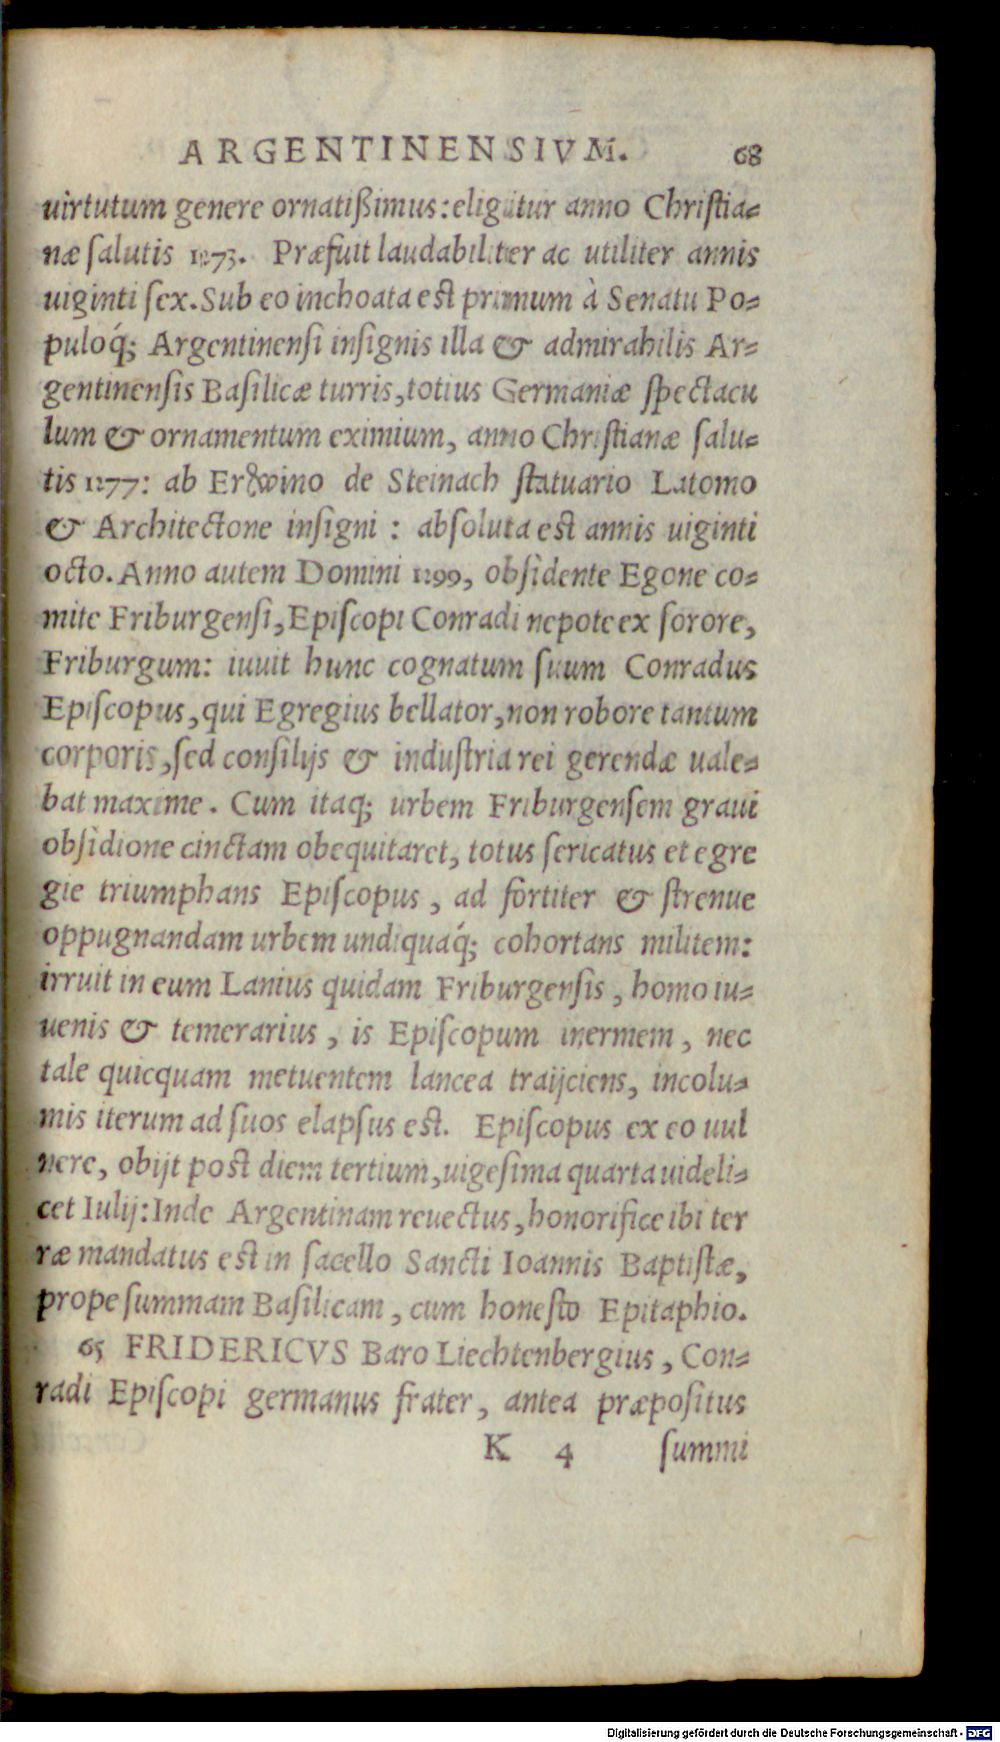 ARGENTINENSIVM. 68
uirtutum genere ornatißimus: eligitur anno Christia=
næ salutis 1273. Præfuit laudabiliter ac utiliter annis
uiginti sex. Sub eo inchoata est primum à Senatu Po=
puloq́; Argentinensi insignis illa & admirabilis Ar=
gentinensis Basilicæ turris, totius Germaniæ spectacu
lum & ornamentum eximium, anno Christianæ salu=
tis 1277: ab Erwino de Steinach statuario Latomo
& Architectone insigni : absoluta est annis uiginti
octo. Anno autem Domini 1299, obsidente Egone co=
mite Friburgensi, Episcopi Conradi nepote ex sorore,
Friburgum: iuuit hunc cognatum suum Conradus
Episcopus, qui Egregius bellator, non robore tantum
corporis, sed consilijs & industria rei gerendæ uale=
bat maxime. Cum itaq; urbem Friburgensem graui
obsidione cinctam obequitaret, totus sericatus et egre
gie triumphans Episcopus, ad fortiter & strenue
oppugnandam urbem undiquaq́; cohortans militem:
irruit in eum Lanius quidam Friburgensis, homo iu=
uenis & temerarius, is Episcopum inermem, nec
tale quicquam metuentem lancea traijciens, incolu=
mis iterum ad suos elapsus est. Episcopus ex eo uul
nere, obijt post diem tertium, uigesima quarta uideli=
cet Iulij: Inde Argentinam reuectus, honorifice ibi ter
ræ mandatus est in sacello Sancti Ioannis Baptistæ,
prope summam Basilicam, cum honesto Epitaphio.
65 FRIDERICVS Baro Liechtenbergius, Con=
radi Episcopi germanus frater, antea præpositus
K 4 summi
Digitalisierung gefördert durch die Deutsche Forschungsgemeinschaft - DFG